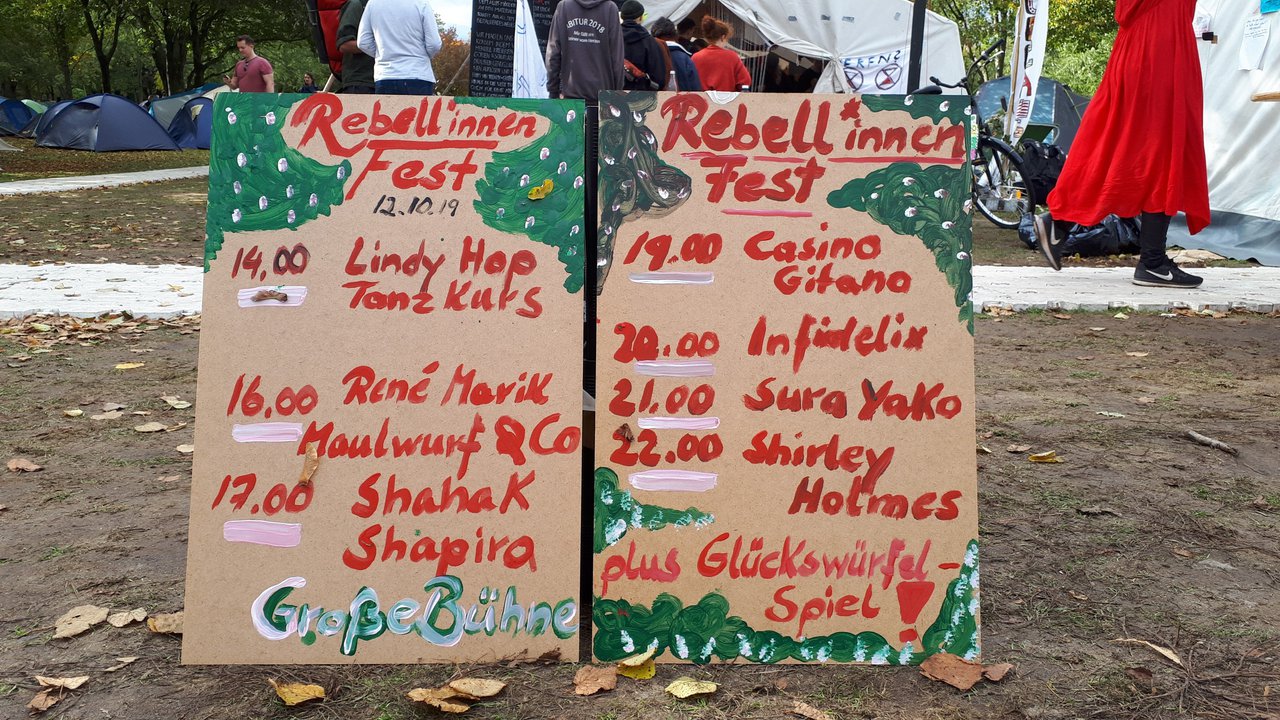 Rebell*innen
Fest
12.10.19
14.00 Lindy Hop
Tanz Kurs
16.00 René Marik
Maulwurf & Co
17.00 Shahak
Shapira
Große Bühne
Rebell*innen
Fest
19.00 Casino
Gitano
20.00 Infidelix
21.00 Sura Yako
22.00 Shirley
Holmes
plus Glückswürfel-
Spiel!
ABITUR 2018